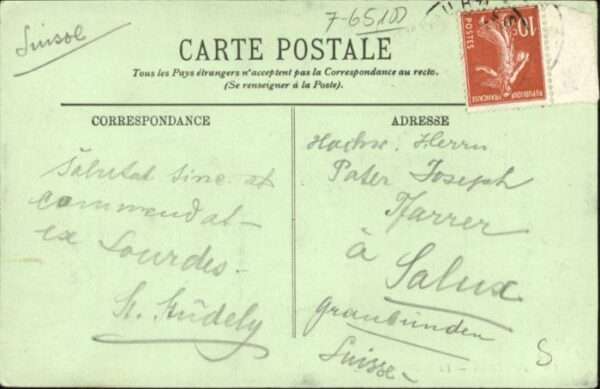 Suisse
7-65100
CARTE POSTALE
Tous les Pays étrangers n'acceptent pas la Correspondance au recto.
(Se renseigner à la Poste).
10c
POSTES
REPUBLIQUE FRANÇAISE
CORRESPONDANCE
Salutat sinc. et
commendat
ex Lourdes.
ADRESSE
Hochw. Herrn
Pater Joseph
Pfarrer
à Salux
Graubünden
Suisse
S